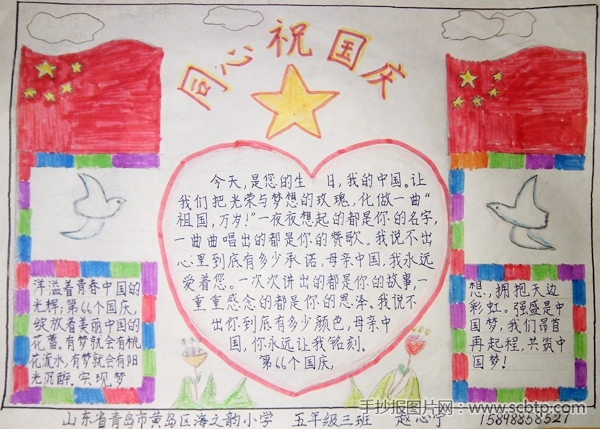 同心祝国庆
今天,是您的生日,我的中国。让
我们把光荣与梦想的玫瑰,化做一曲“
祖国,万岁!”一夜夜想起的都是你的名字,
一曲曲唱出的都是你的赞歌。我说不出
心里到底有多少承诺,母亲中国,我永远
爱着您。一次次讲出的都是你的故事,一
重重感念的都是你的恩泽。我说不
出你到底有多少颜色,母亲中
国,你永远让我铭刻。
第66个国庆,
洋溢着青春中国的
光辉;第66个国庆,
绽放着美丽中国的
花蕾。有梦就会有桃
花流水,有梦就会有阳
光沉醉。实现梦
想,拥抱天边
彩虹。强盛是中
国梦,我们昂首
再起程,共筑中
国梦!
山东省青岛市黄岛区海之韵小学 五年级三班 赵心宁 15898858521
手抄报图片网:www.scbtp.com